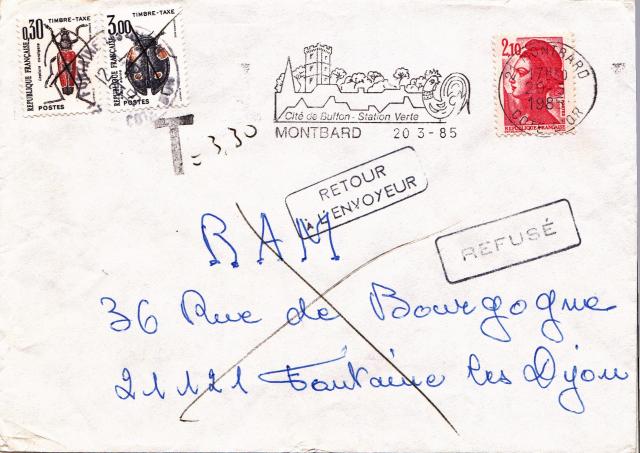 0,30
TIMBRE-TAXE
RÉPUBLIQUE FRANÇAISE
POSTES
3,00
TIMBRE-TAXE
RÉPUBLIQUE FRANÇAISE
POSTES
T = 3,30
Cité de Buffon - Station Verte
MONTBARD 20 3-85
2,10
RÉPUBLIQUE FRANÇAISE
MONTBARD
17H30
CÔTE D'OR
RETOUR
À L'ENVOYEUR
REFUSÉ
RAM
36 Rue de Bourgogne
21121 Fontaine les Dijon